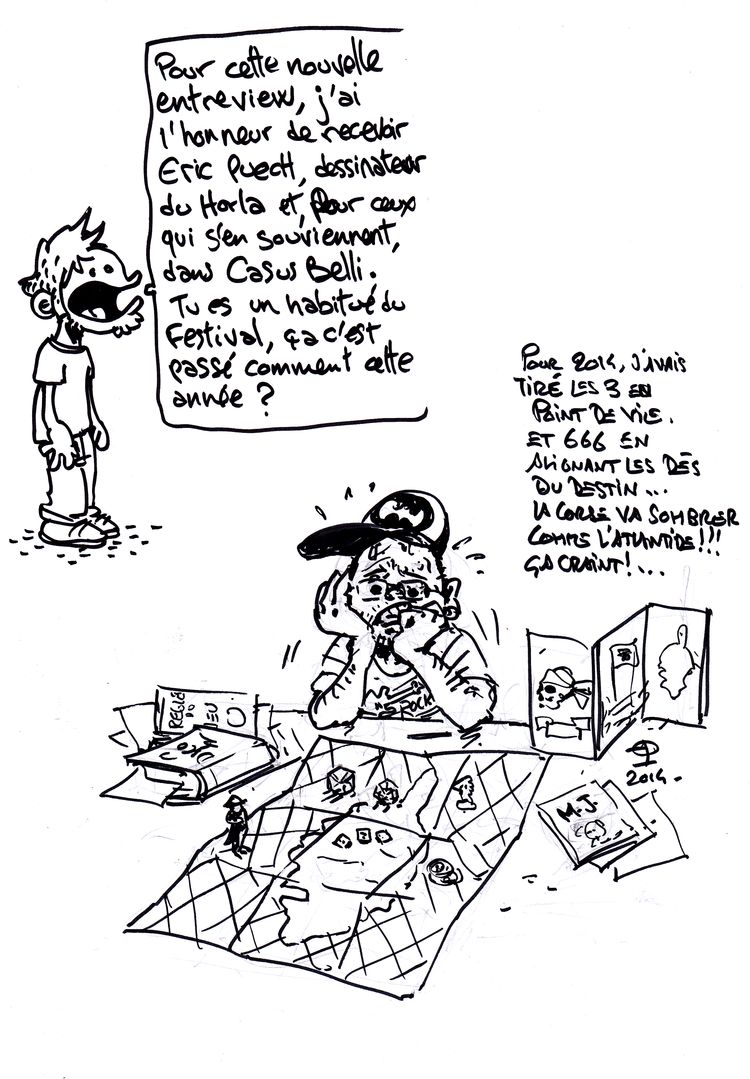 Pour cette nouvelle
entreview, j'ai
l'honneur de recevoir
Eric Puech, dessinateur
du Horla et, pour ceux
qui s'en souviennent,
dans Casus Belli.
Tu es un habitué du
Festival, ça c'est
passé comment cette
année ?
POUR 2014, J'AVAIS
TIRÉ LES 3 EN
POINT DE VIE.
ET 666 EN
ALIGNANT LES DÉS
DU DESTIN...
LA CORSE VA SOMBRER
COMME L'ATLANTIDE!!!
ÇA CRAINT!...
REGLE
DU
JEU
ROCK
2014.
M.J.